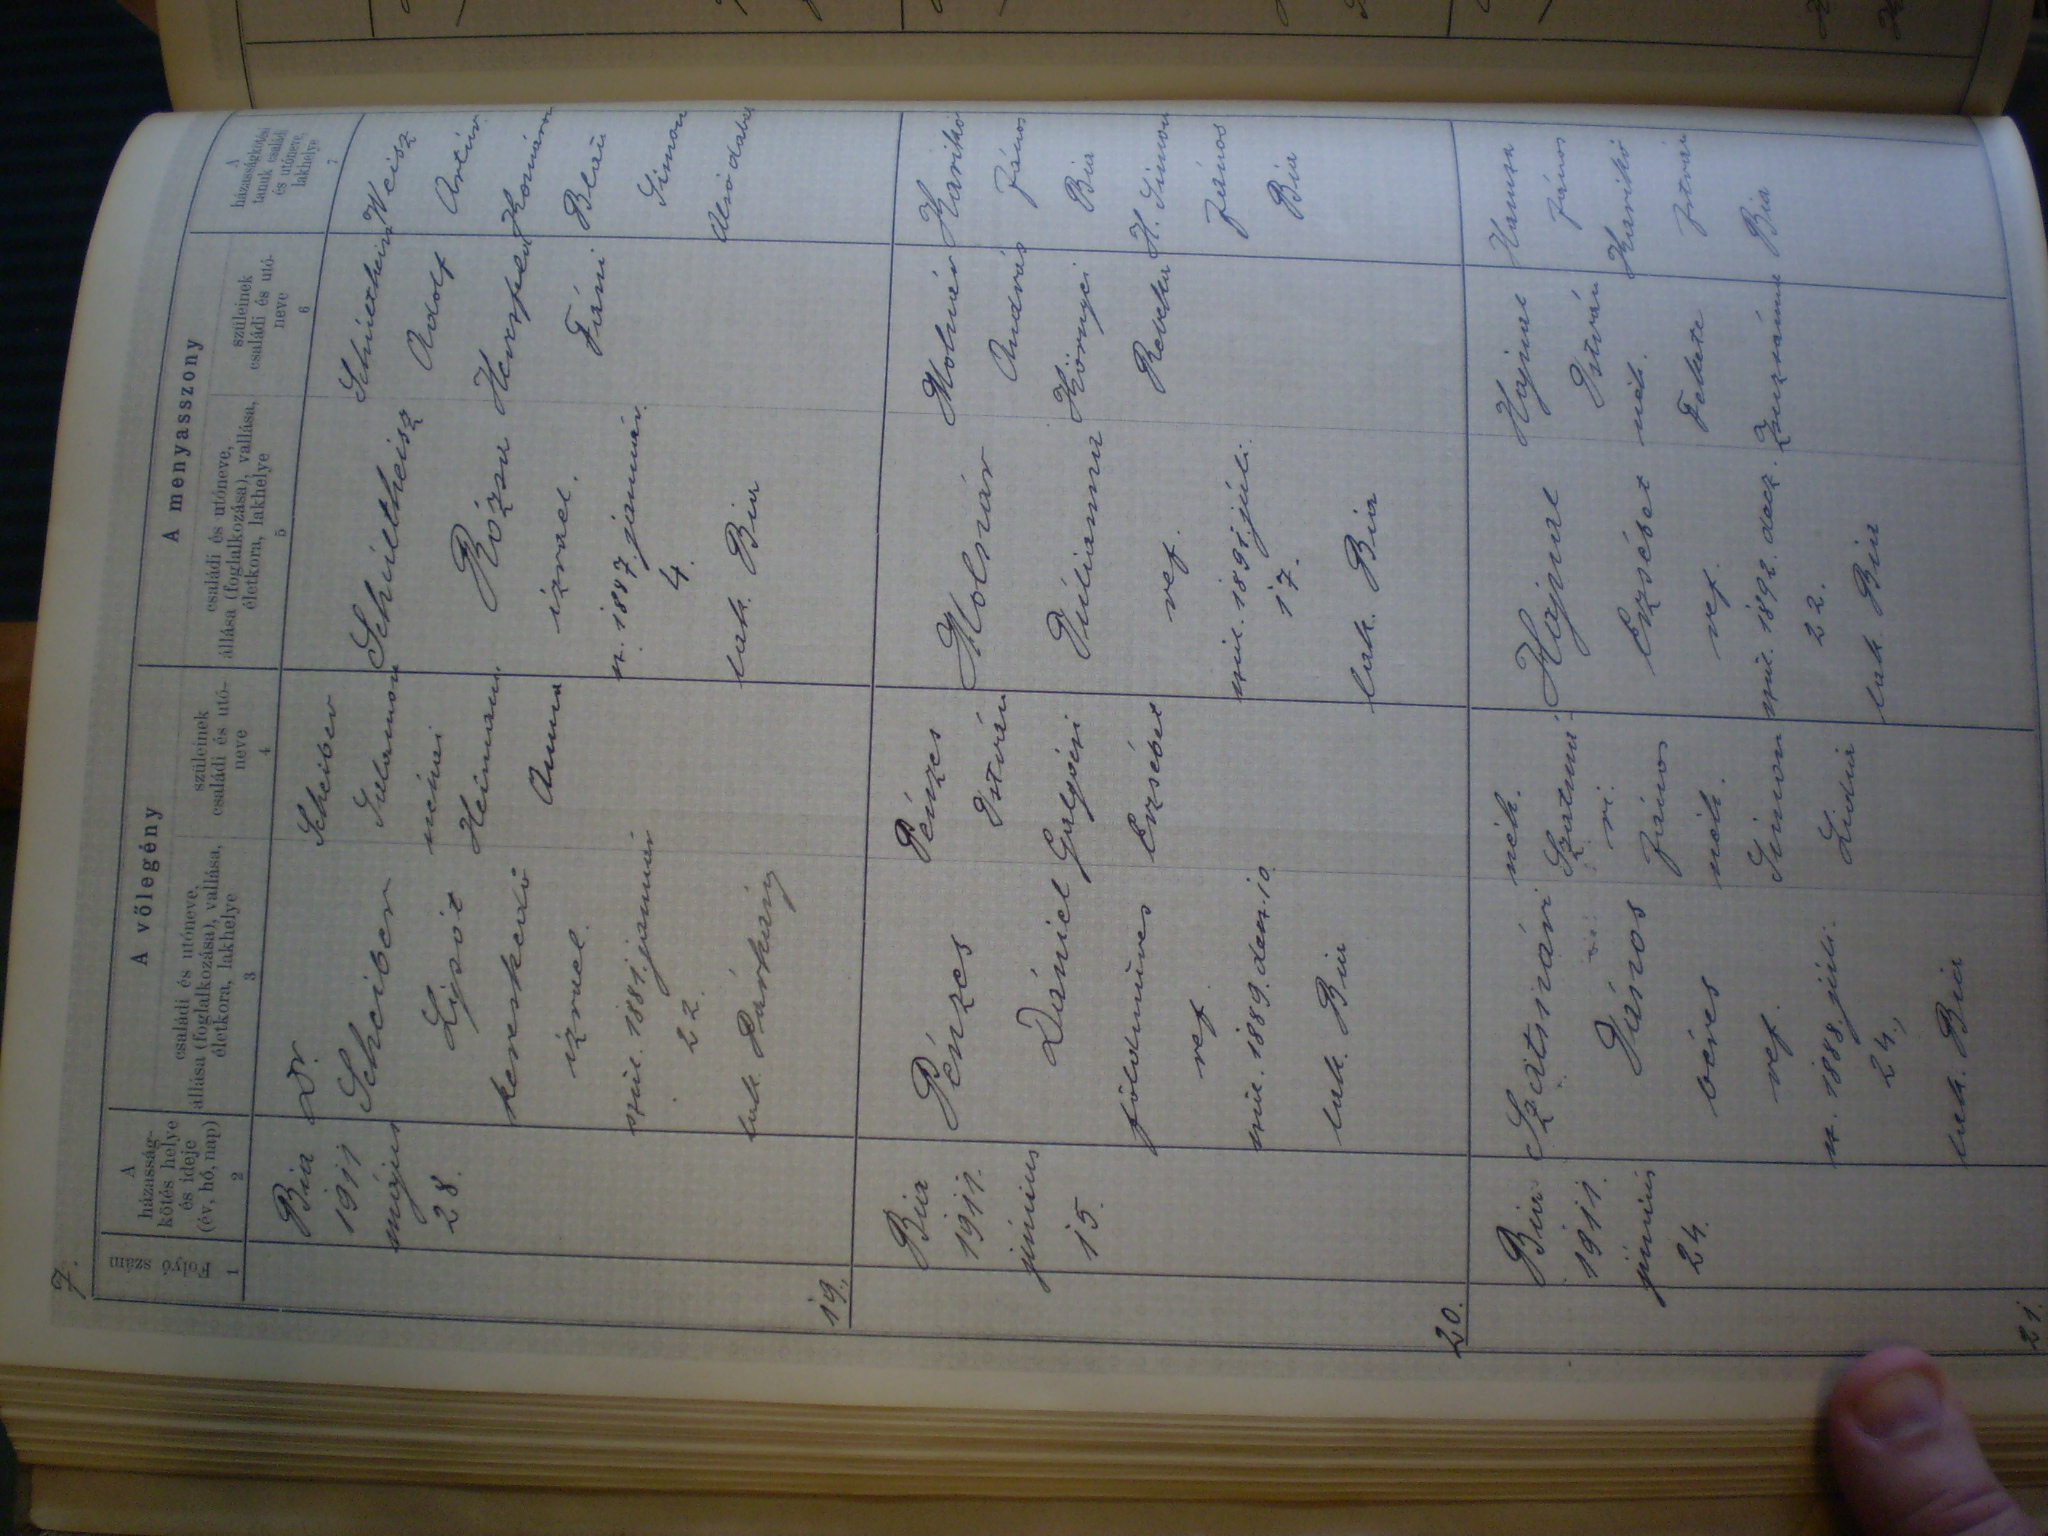 7.
Folyó szám
1
A
házasság-
kötés helye
és ideje
(év, hó, nap)
2
A vőlegény
családi és utóneve,
állása (foglalkozása), vallása,
életkora, lakhelye
3
szüleinek
családi és utó-
neve
4
A menyasszony
családi és utóneve,
állása (foglalkozása), vallása,
életkora, lakhelye
5
szüleinek
családi és utó-
neve
6
A
házasságkötési
tanuk családi
és utóneve,
lakhelye
7
19.
Bia
1911
május
28.
Dr.
Scheiber
Lipót
kereskedő
izrael.
szül. 1881. januári
22.
lak. Párkány
Scheiber
Salamon
Heiman
Anna
Schultheisz
Róza
izrael.
sz. 1887. januári
4.
lak. Bia
Schultheisz
Adolf
Herzfeld
Fáni
Weisz
Artúr
Komárom
Blau
Simon
Alsódabas
20.
Bia
1911.
június
15.
Pénzes
Dániel
földműves
ref.
szül. 1889. dec. 10.
lak. Bia
Pénzes
István
Galgóczi
Erzsébet
Molnár
Júlianna
ref.
szül. 1891. júli.
17.
lak. Bia
Molnár
András
Környei
Rebeka
Karikó
János
Bia
H. Simon
János
Bia
21.
Bia
1911.
június
24.
Szatmári
János
béres
ref.
sz. 1888. júli.
24.,
lak. Bia
néh.
Szatmá-
ri
János
néh.
Simon
Lidia
Hajnal
Erzsébet
ref.
szül. 1892. decz.
22.
lak. Bia
Hajnal
István
néh.
Fekete
Zsuzsánna
Hanza
János
Karikó
István
Bia